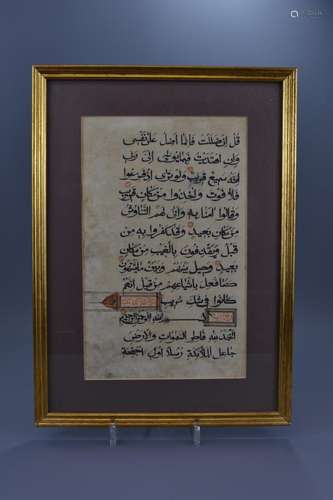 قل ان ضللت فانما اضل على نفسي
وان اهتديت فبما يوحي الى ربي
انه سميع قريب ولو ترى اذ فزعوا
فلا فوت واخذوا من مكان قريب
وقالوا امنا به وانى لهم التناوش
من مكان بعيد وقد كفروا به من
قبل ويقذفون بالغيب من مكان
بعيد وحيل بينهم وبين ما يشتهون
كما فعل باشياعهم من قبل انهم
كانوا في شك مريب
بسم الله الرحمن الرحيم
الحمد لله فاطر السموات والارض
جاعل الملائكة رسلا اولى اجنحة